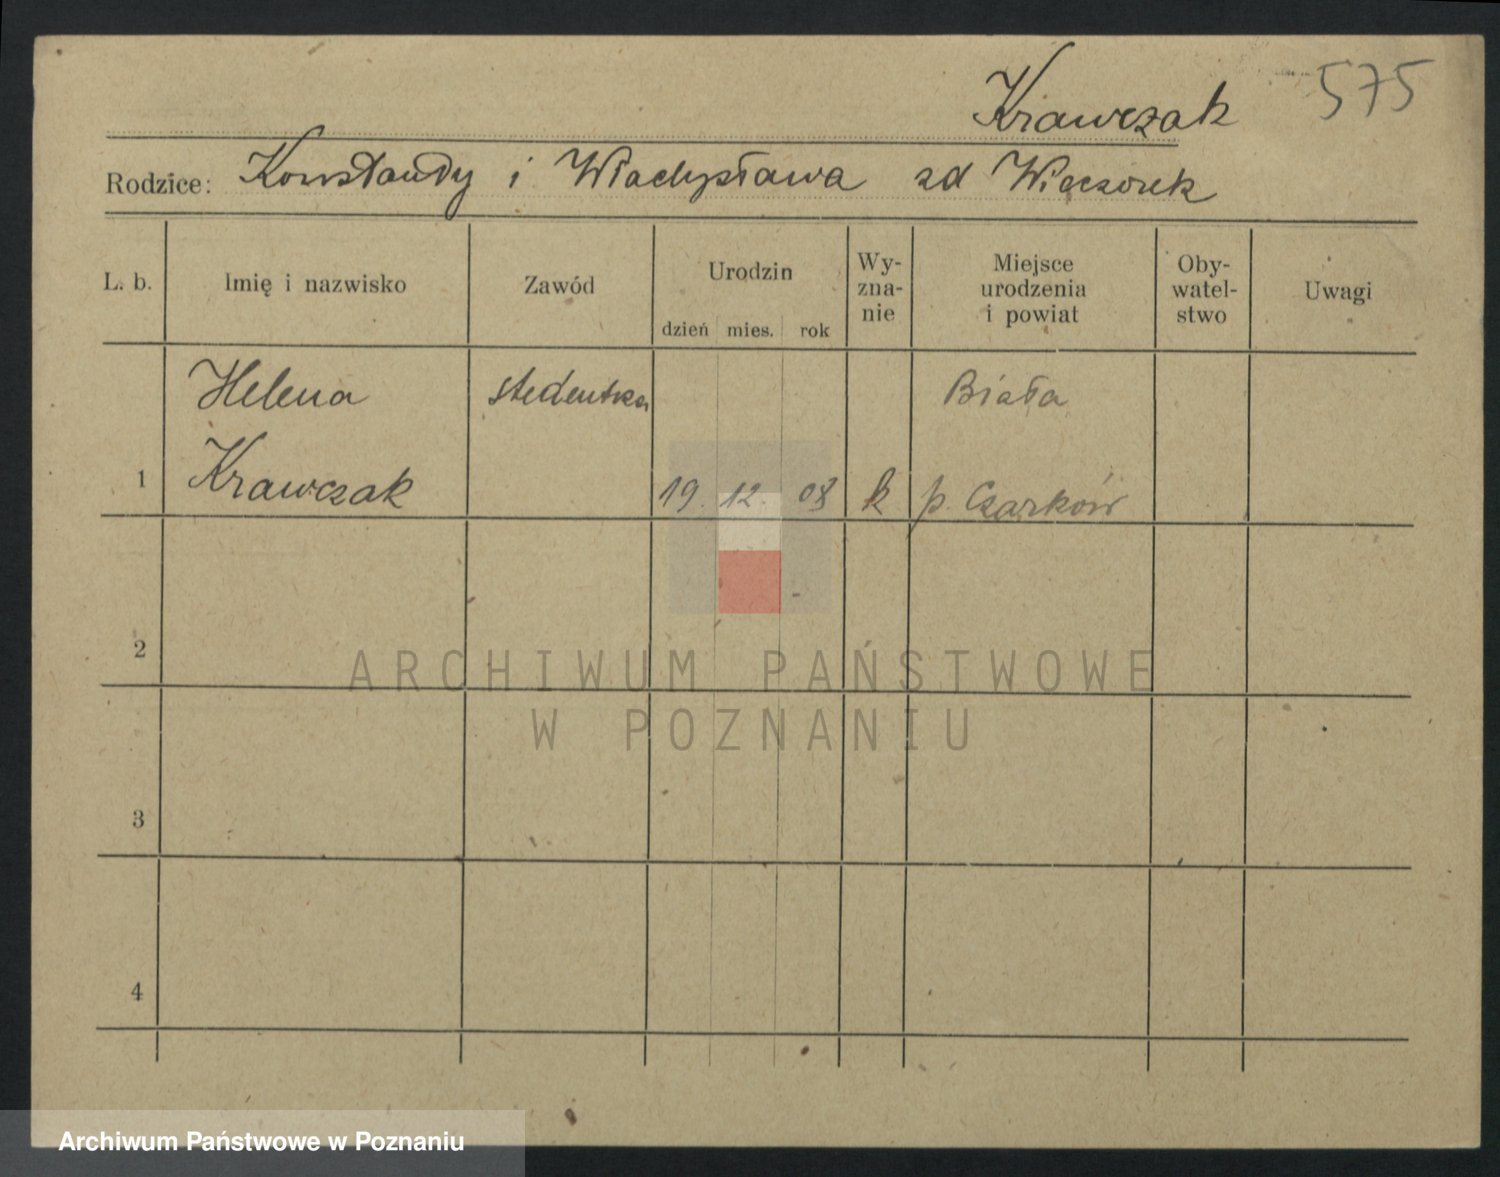 Krawczak 575
Rodzice: Konstanty i Władysława zd Wieczorek
L. b. Imię i nazwisko Zawód Urodzin Wy-zna-nie Miejsce urodzenia i powiat Oby-watel-stwo Uwagi
dzień mies. rok
Helena studentka Biała
1 Krawczak 19. 12. 08 k p. Czarków
2
3
4
ARCHIWUM PAŃSTWOWE
W POZNANIU
Archiwum Państwowe w Poznaniu